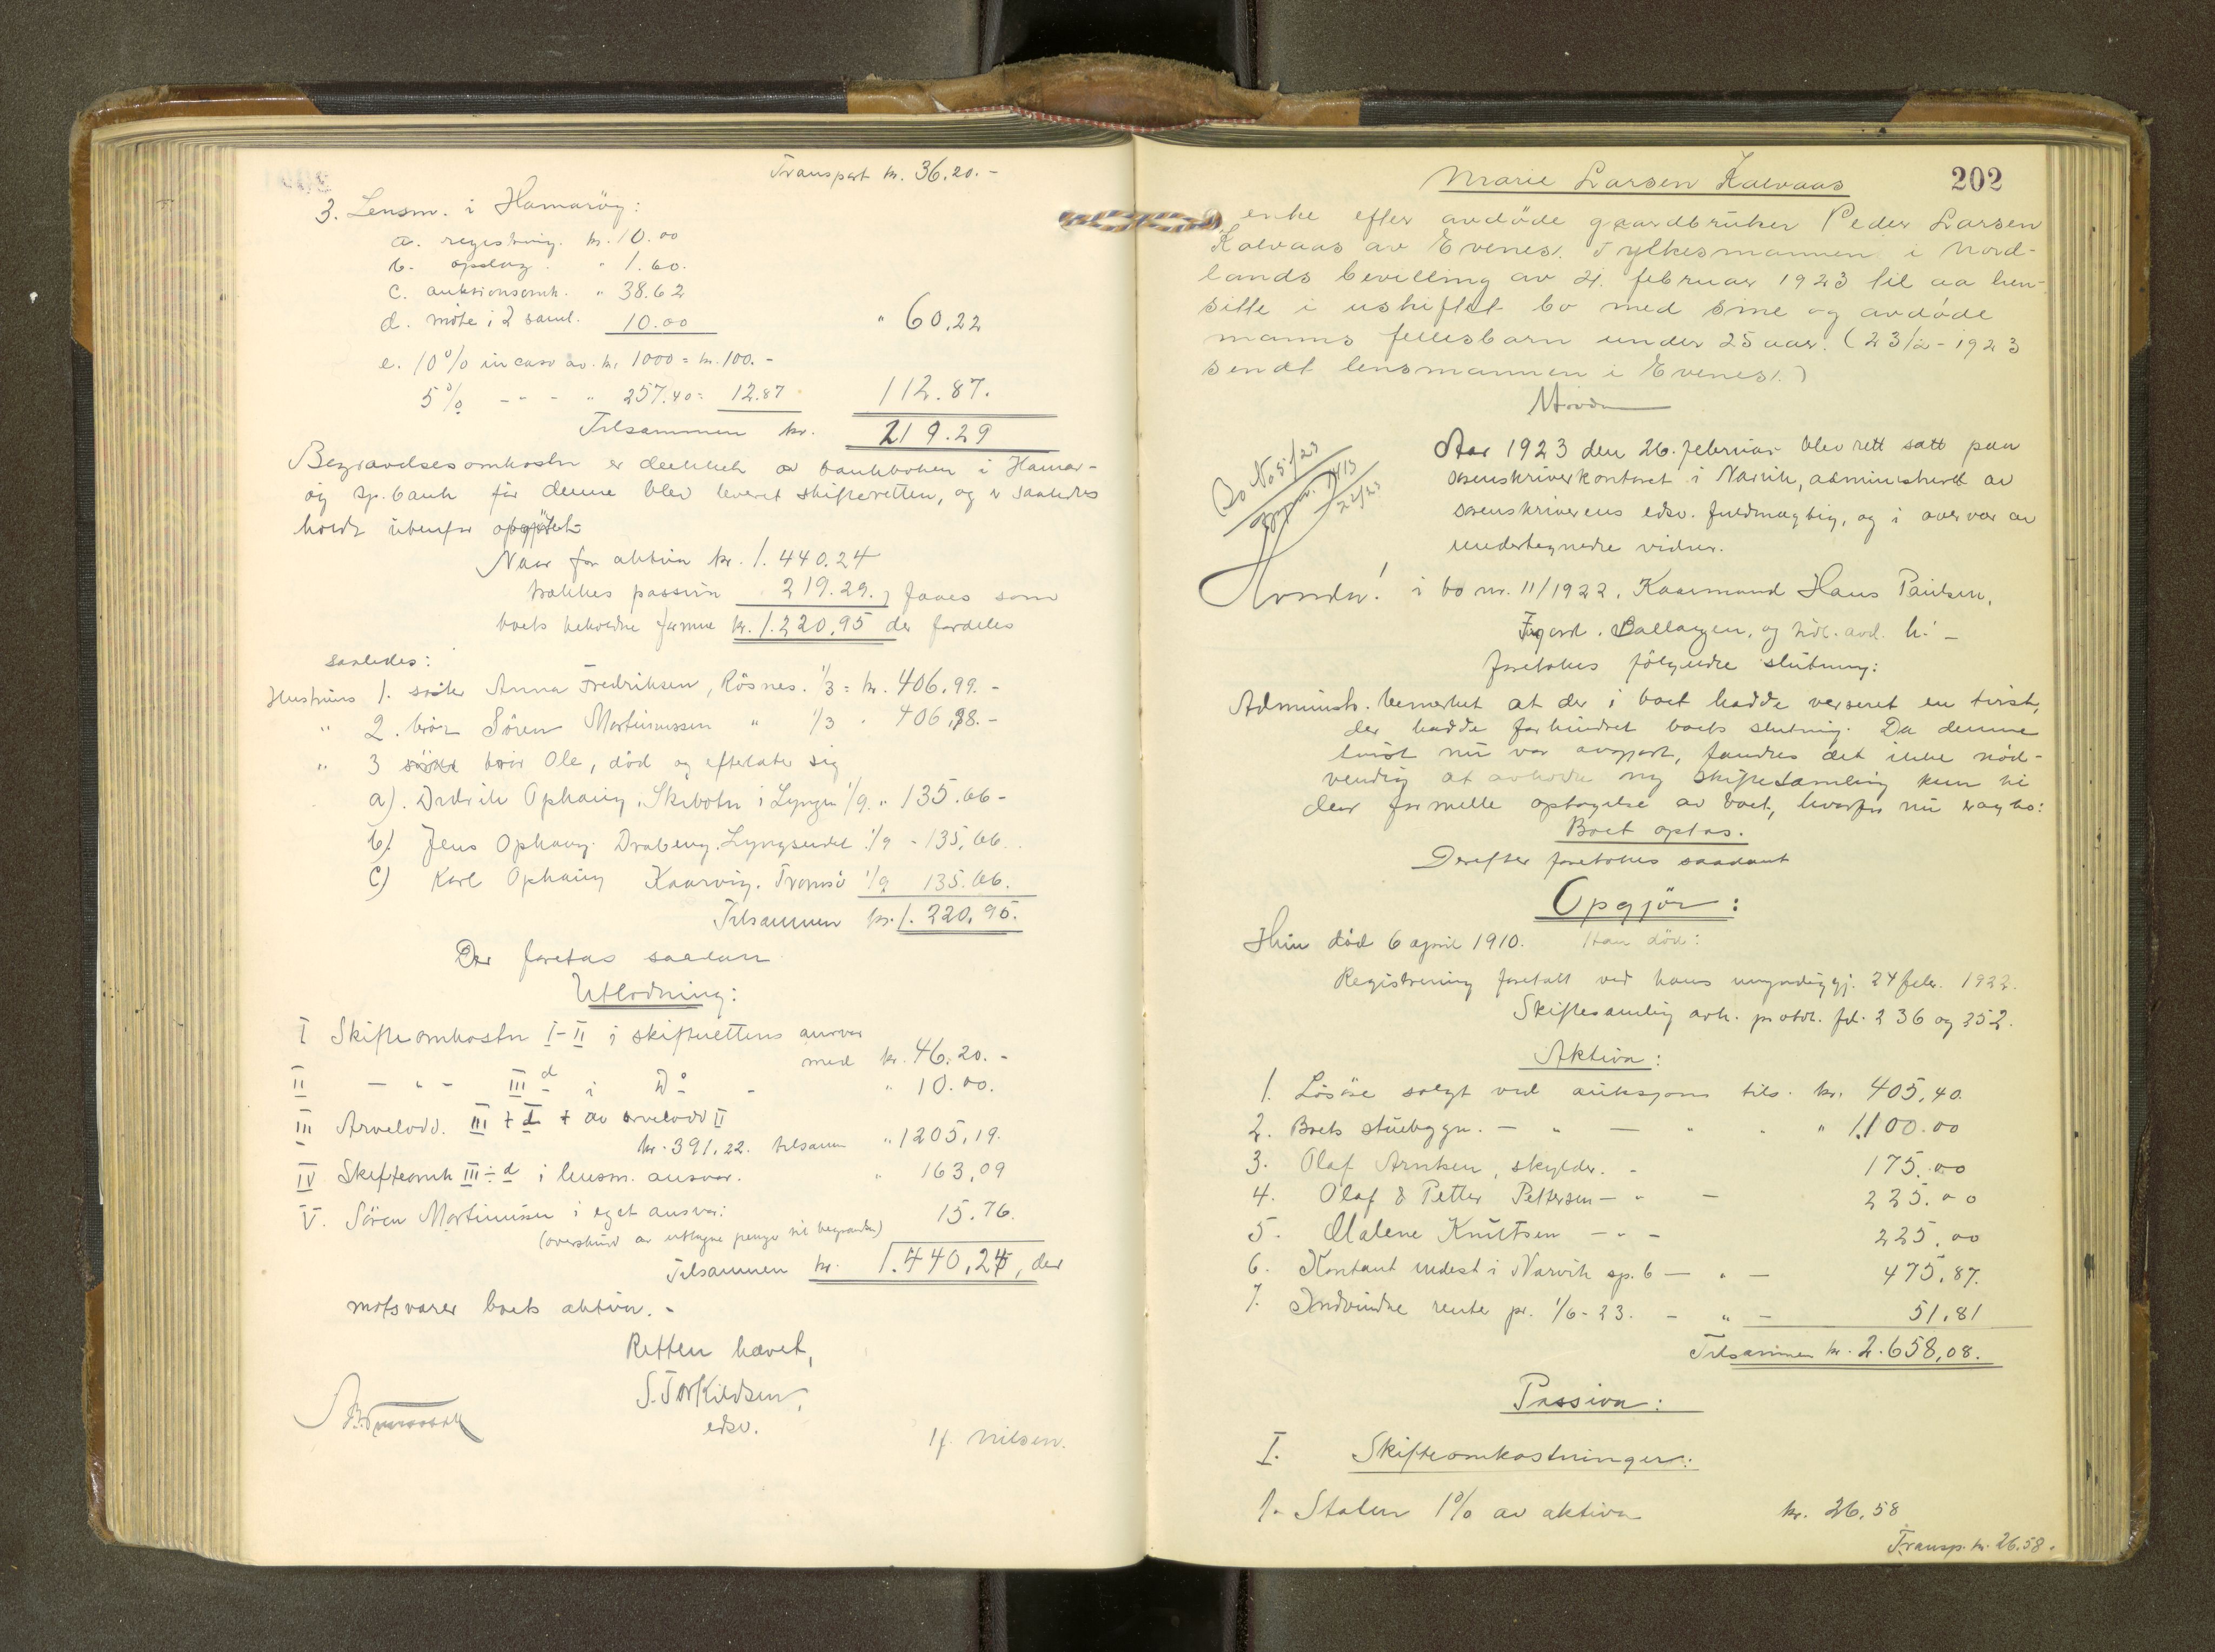 Transport kr. 36.20.-
3. Lensm. i Hamaröy:
a. registring. kr. 10.00
b. opslag. " 1.60.
c. auktionsomk. " 38.62
d. möte i 2 saml. 10.00 " 60.22
e. 10% incaso av. kr. 1000 = kr. 100.-
5% - - - " 257.40 = 12.87 112.87.
Tilsammen kr. 219.29
Begravelsesomkostn er dækket av bankboken i Hamar-
öy sp.bank för denne blev leveret skifteretten, og er saaledes
holdt utenfor opgjöret
Naar fra aktiva kr. 1.440.24
trækkes passiva 219.29., faaes som
boets beholdne formue kr. 1.220,95 der fordeles
saaledes:
Hustruens 1. söster Anna Fredriksen, Rösnes. 1/3 = kr. 406,99.-
" 2. bror Sören Martinussen " 1/3 " 406,98.-
" 3 bror Ole, död og efterlater sig
a). Didrik Ophaug, Skibotn i Lyngen 1/9. " 135.66-
b) Jens Ophaug. Lyngseidet 1/9 - 135,66.
c) Karl Ophaug Kaarvig. Tromsö 1/9 135.66.
Tilsammen kr. 1.220,95.
Der foretas saadan
Utlodning:
I Skifteomkostn I-II i skifterettens ansvar
med kr. 46.20.-
II - " - III d i Do - " 10.00.
III Arvelodd. III + I + av arvelodd II
kr. 391.22. tilsamm " 1205,19.
IV Skifteomk III ÷ d i lensm. ansvar. " 163,09
V. Sören Martinussen i eget ansvar: 15.76.
(overskud av utlagne penge til begravelse)
Tilsammen kr. 1.440,24, der
motsvarer boets aktiva.-
Retten hævet,
S. Torkildsen,
edsv.
H. Nilsen.
202
Marie Larsen Kalvaas
enke efter avdöde gaardbruker Peder Larsen
Kalvaas av Evenes. Fylkesmannen i Nord-
lands bevilling av 21. februar 1923 til aa hen-
sitte i uskiftet bo med sine og avdöde
manns fellesbarn under 25 aar. (23/2-1923
sendt lensmannen i Evenes.)
Aar 1923 den 26. februar blev rett satt paa
sorenskriverkontoret i Narvik, administreret av
sorenskriverens edsv. fuldmægtig, og i overvær av
undertegnede vidner.
Bo No 5/23
22/23
Hvorda! i bo nr. 11/1922, Kaarmand Hans Paulsen,
Ballangen, og tidl. avd. h. -
foretokes fölgende slutning:
Administr. bemerket at der i boet hadde verseret en tvist,
der hadde forhindret boets slutning. Da denne
tvist nu var avgjort, fandtes det ikke nöd-
vendig at avholde ny skiftesamling kun til
den formelle optagelse av boet, hvorfor nu
Boet optas.
Derefter foretokes saadant
Opgjör:
Hun död 6 april 1910. Han död:
Registrering foretatt ved hans umyndiggj. 24 febr. 1922.
Skiftesamling avh. protok. fol. 236 og 252.
Aktiva:
1. Lösöre solgt ved auksjon tils. kr. 405,40.
2. Boets stuebygn. - " - " " " 1.100.00
3. Olaf Arntsen, skylder. - 175.00
4. Olaf & Petter Pettersen - " - 225.00
5. Malene Knutsen - " - 225.00
6. Kontant indest i Narvik sp.b - " - 475,87.
7. Indvundne renter pr. 1/6-23. - " - 51,81
Tilsammen kr. 2.658,08.
Passiva:
I. Skifteomkostninger:
1. Staten 1% av aktiva kr. 26,58
Transp. kr. 26.58.